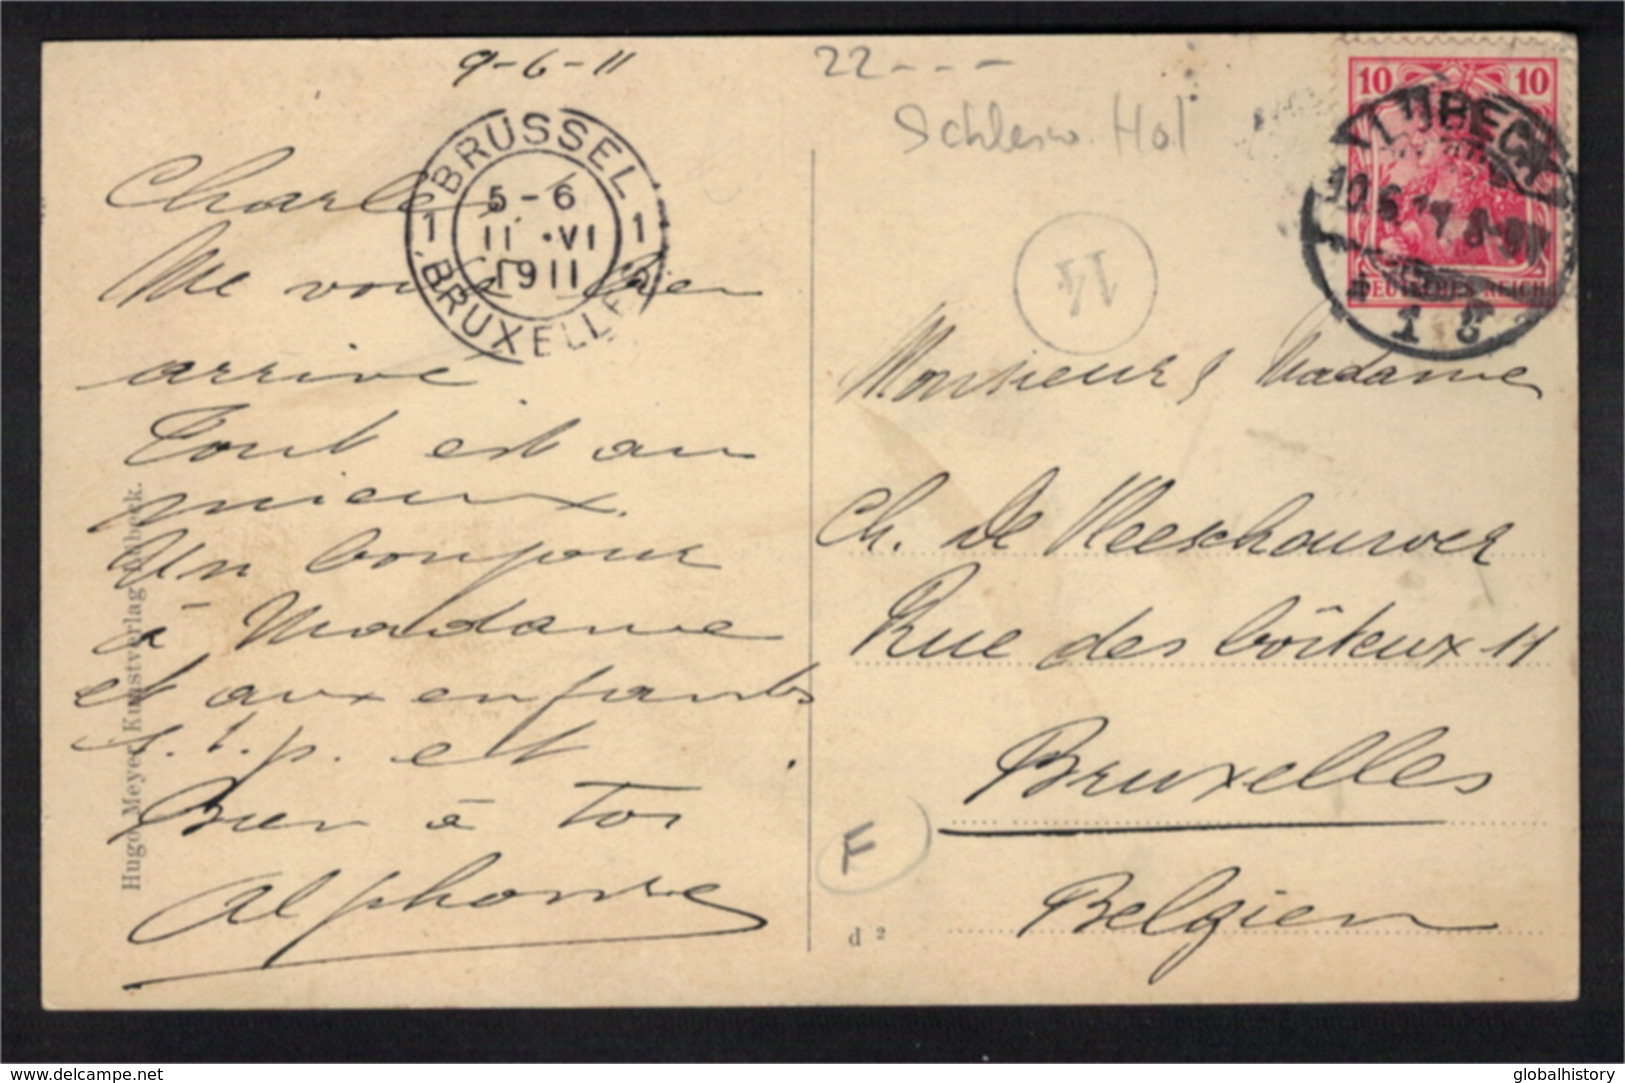 9-6-11
22---
Schlesw. Hol
BRÜSSEL
1 5-6 1
11 •VI
1911
BRUXELLES
10 10
LÜBECK
10.6.11. 8-9V
DEUTSCHES REICH
1 c
14
Charles
Me voila bien
arrivé
Tout est au
mieux.
Un bonjour
à Madame
et aux enfants
s.t.p. et
Bien à toi
Alphonse
Monsieur & Madame
Ch. De Vleeschouwer
Rue des boîteux 11
Bruxelles
Belgien
F
d 2
Hugo Meyer, Kunstverlag, Lübeck.
www.delcampe.net
globalhistory